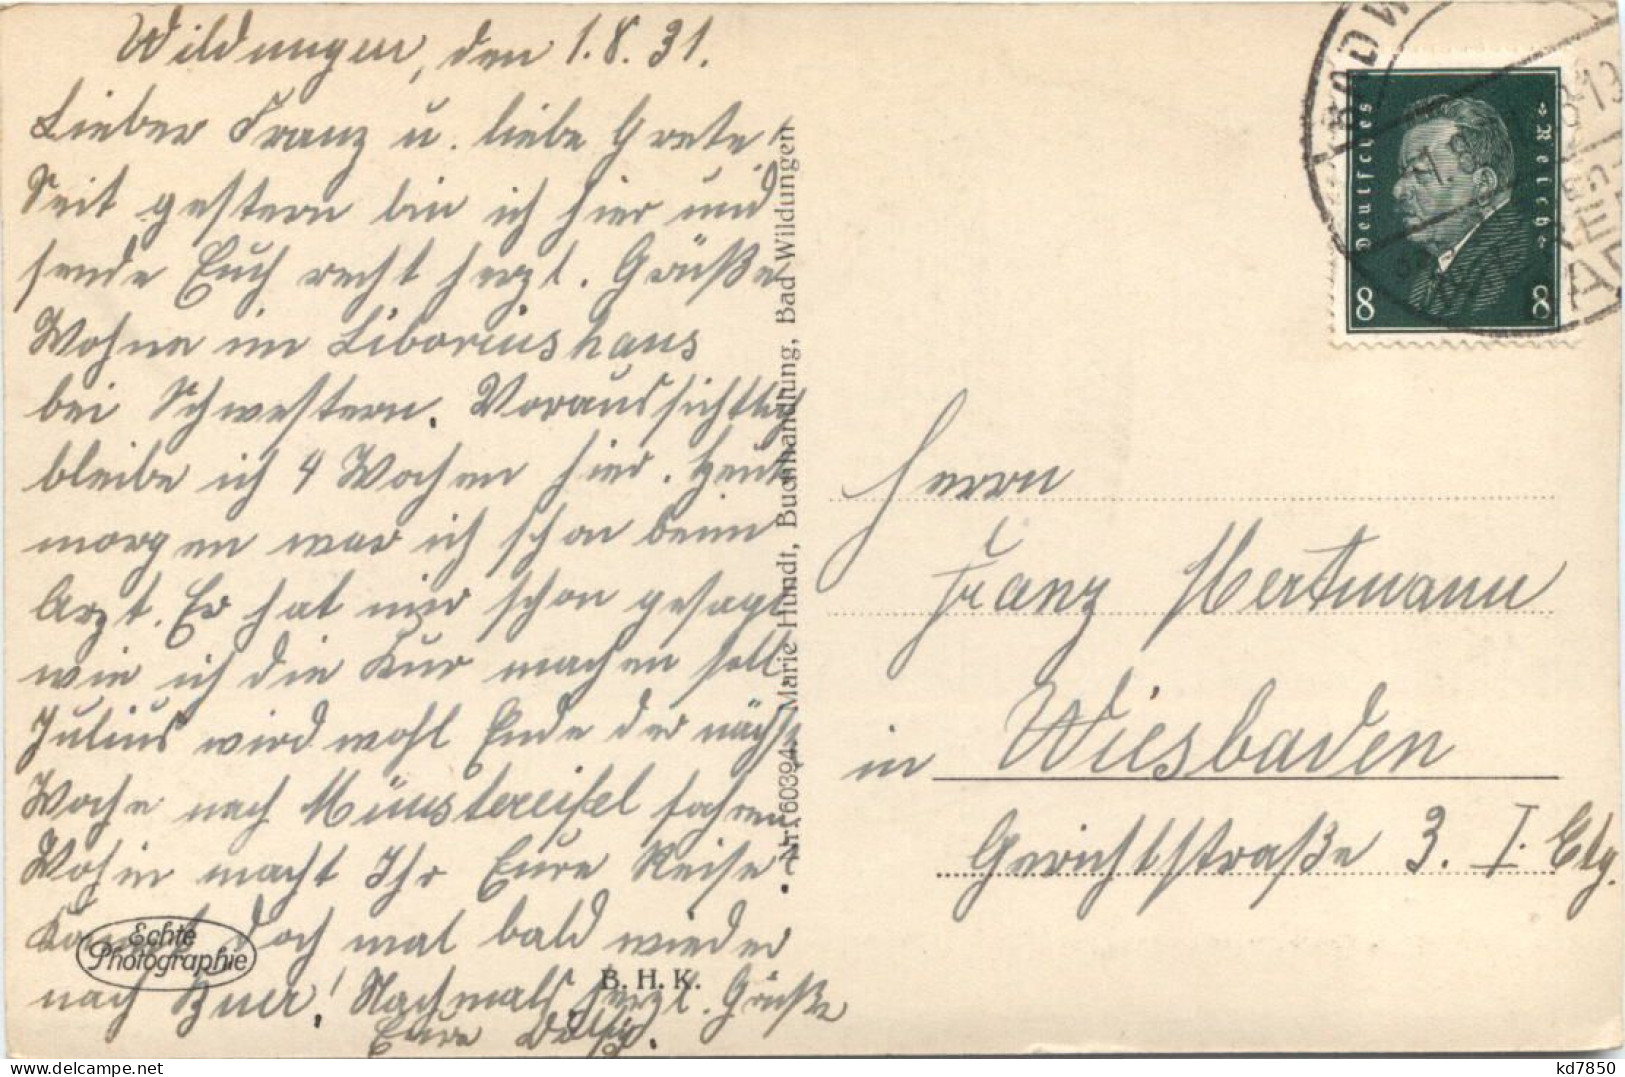 Wildungen, den 1.8.31.
Lieber Franz u. liebe Grete!
Seit gestern bin ich hier und
sende Euch recht herzl. Grüße
Wohne im Liboriushaus
bei Schwestern. Voraussichtlich
bleibe ich 4 Wochen hier. Heute
morgen war ich schon beim
Arzt. Er hat mir schon gesagt
wie ich die Kur machen soll.
Julius wird wohl Ende der nächst
Woche nach Münstereifel fahren
Wohin macht Ihr Eure Reise.
doch mal bald wieder
nach Buer! Nachmals herzl. Grüße
Eure
Echte
Photographie
B. H. K.
Nr. 60394. Marie Hundt, Buchhandlung, Bad Wildungen
Deutsches
Reich
8 8
Herrn
Franz Mertmann
in Wiesbaden
Gerichtstraße 3. I. Etg.
kd7850